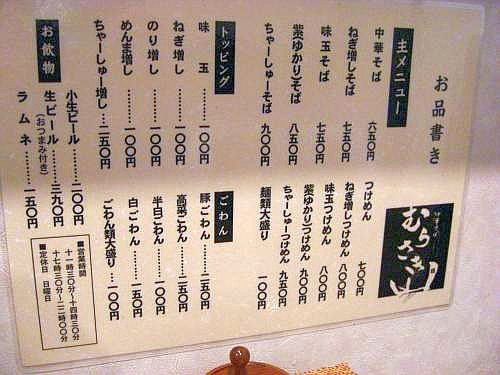 お品書き
むらさき
主メニュー
中華そば 六五〇円
ねぎ増しそば 七五〇円
味玉そば 七五〇円
紫(ゆかり)そば 八五〇円
ちゃーしゅーそば 九〇〇円
つけめん 七〇〇円
ねぎ増しつけめん 八〇〇円
味玉つけめん 八〇〇円
紫(ゆかり)つけめん 九〇〇円
ちゃーしゅーつけめん 九五〇円
麺類大盛り 一〇〇円
トッピング
味玉………一〇〇円
ねぎ増し………一〇〇円
のり増し………一〇〇円
めんま増し………一〇〇円
ちゃーしゅー増し…二五〇円
ごわん
豚ごわん……二五〇円
高菜ごわん……二五〇円
半白ごわん……一〇〇円
白ごわん……一五〇円
ごわん類大盛り……一〇〇円
お飲物
小生ビール………二〇〇円
生ビール………三九〇円
(おつまみ付き)
ラムネ………一五〇円
■営業時間
十一時三〇分〜十四時三〇分
十七時三〇分〜二二時〇〇分
■定休日 日曜日